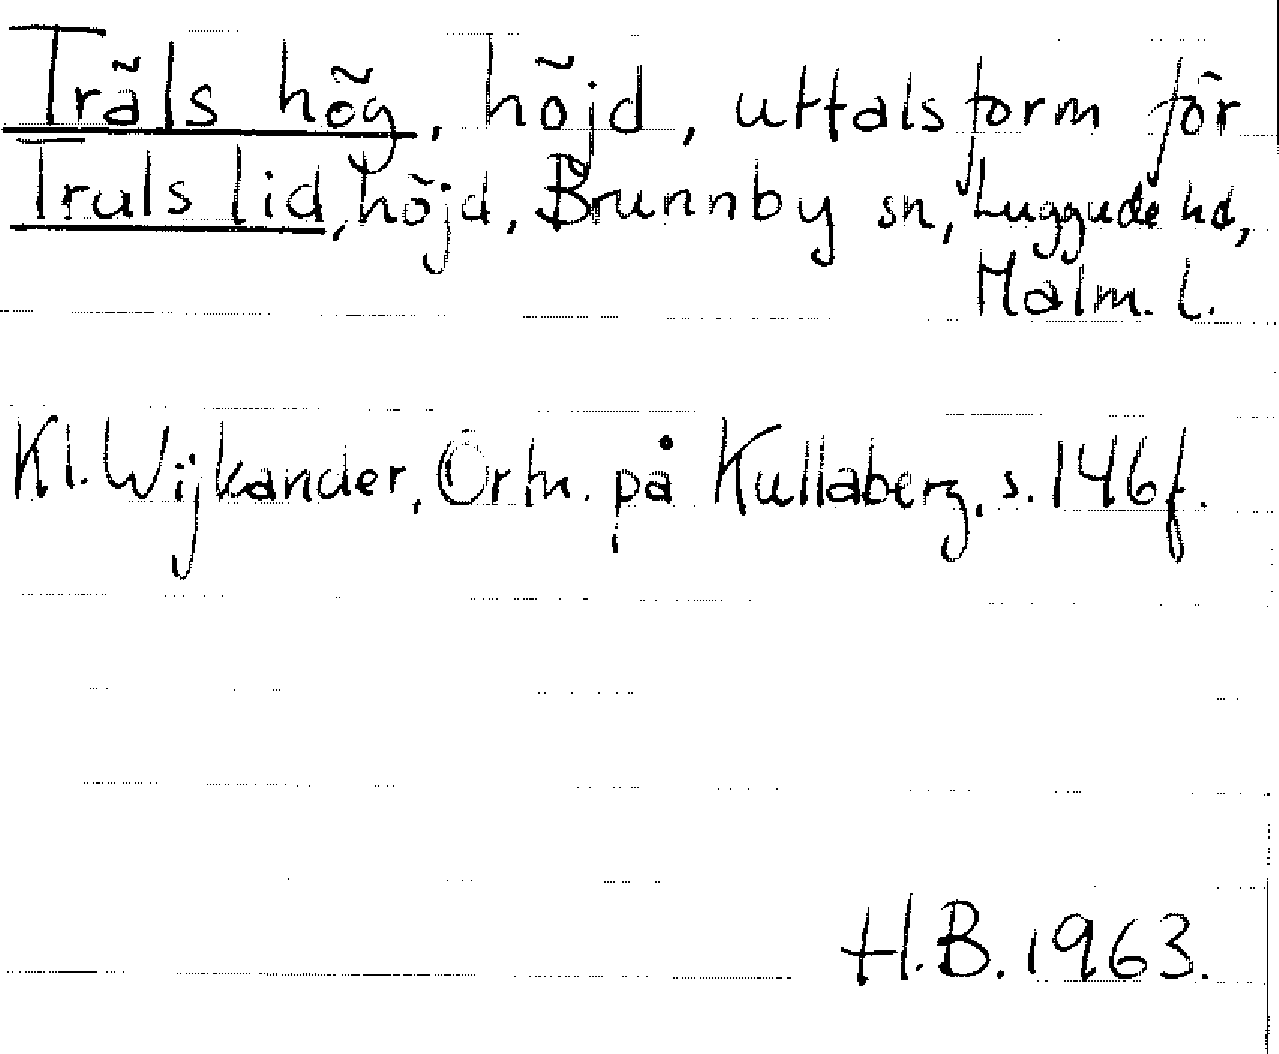 Träls hög, höjd, uttalsform för
Truls lid, höjd, Brunnby sn, Luggude hd,
Malm. l.
Kl. Wijkander, Ortn. på Kullaberg, s. 146f.
H.B. 1963.